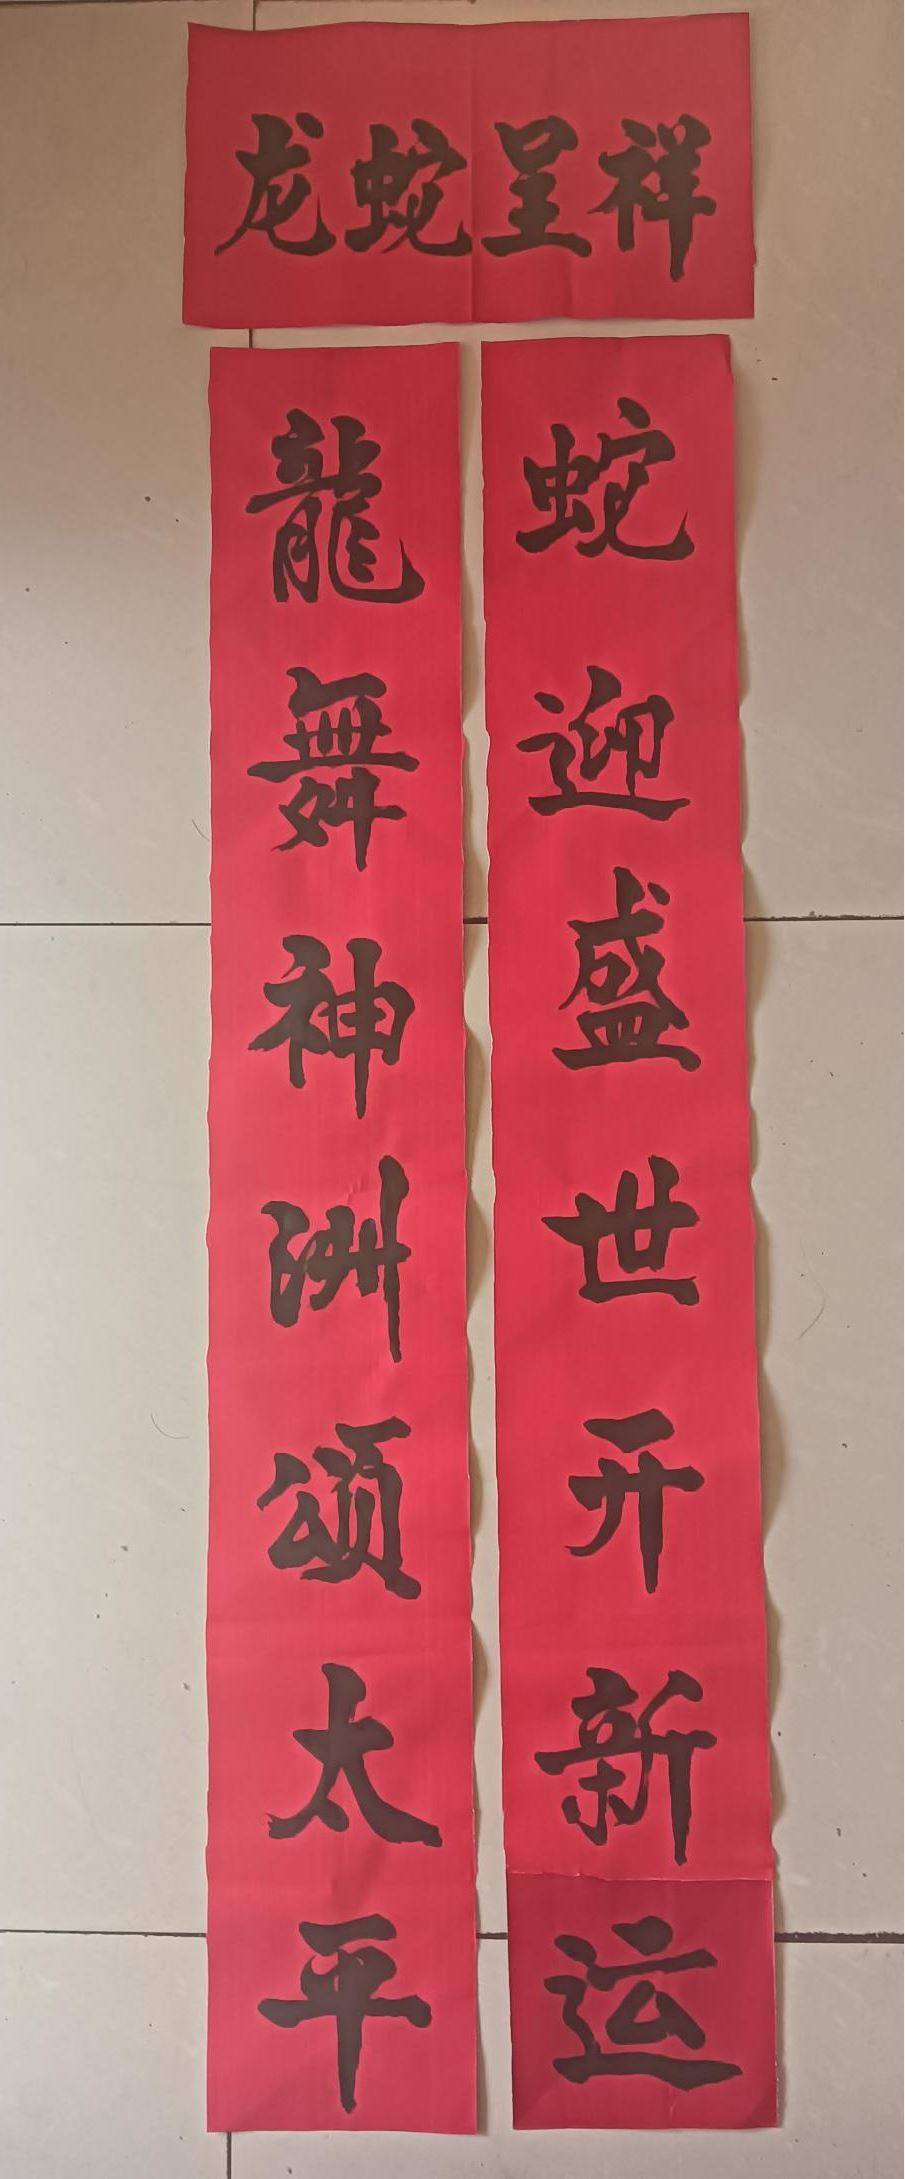 龙蛇呈祥
蛇迎盛世开新运
龍舞神洲颂太平